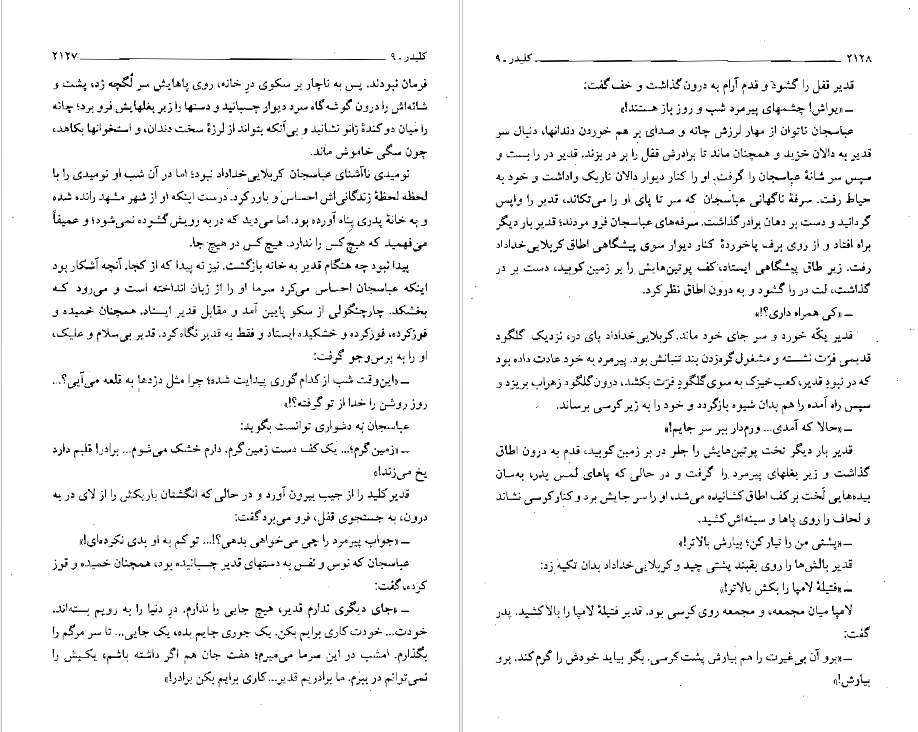 کلیدر ـ ۹ ۲۱۲۷
فرمان نبودند. پس به ناچار بر سکوی درِ خانه، روی پاهایش سر لُگچه زد، پشت و
شانه‌اش را درون گوشه‌گاه سرد دیوار چسبانید و دستها را زیر بغلهایش فرو برد؛ چانه
را میان دو کندهٔ زانو نشانید و بی‌آنکه بتواند از لرزهٔ سخت دندان، و استخوانها بکاهد،
چون سگی خاموش ماند.
نومیدی ناآشنای عباسجان کربلایی‌خداداد نبود؛ اما در آن شب او نومیدی را با
لحظه لحظهٔ زندگانی‌اش احساس و باور کرد. درست اینکه او از شهر مشهد رانده شده
و به خانهٔ پدری پناه آورده بود. اما می‌دید که در به رویش گشوده نمی‌شود؛ و عمیقاً
می‌فهمید که هیچ‌کس را ندارد. هیچ کس در هیچ جا.
پیدا نبود چه هنگام قدیر به خانه بازگشت. نیز نه پیدا که از کجا. آنچه آشکار بود
اینکه عباسجان احساس می‌کرد سرما او را از زبان انداخته است و می‌رود که
بخشکد. چارچنگولی از سکو پایین آمد و مقابل قدیر ایستاد. همچنان خمیده و
قوزکرده، قوزکرده و خشکیده ایستاد و فقط به قدیر نگاه کرد. قدیر بی‌سلام و علیک،
او را به پرس‌وجو گرفت:
ـ «این‌وقت شب از کدام گوری پیدایت شده؛ چرا مثل دزدها به قلعه می‌آیی؟...
روز روشن را خدا از تو گرفته؟!»
عباسجان به دشواری توانست بگوید:
ـ «زمین گرم؛... یک کف دست زمین گرم. دارم خشک می‌شوم... برادر! قلبم دارد
یخ می‌زند!»
قدیر کلید را از جیب بیرون آورد و در حالی که انگشتان باریکش را از لای در به
درون، به جستجوی قفل، فرو می‌برد گفت:
ـ «جواب پیرمرد را چی می‌خواهی بدهی؟!... تو کم به او بدی نکرده‌ای!»
عباسجان که نوس و نفس به دستهای قدیر چسبانیده بود، همچنان خمیده و قوز
کرده، گفت:
ـ «جای دیگری ندارم قدیر، هیچ جایی را ندارم. درِ دنیا را به رویم بسته‌اند.
خودت... خودت کاری برایم بکن. یک جوری جایم بده، یک جایی... تا سر مرگم را
بگذارم. امشب در این سرما می‌میرم؛ هفت جان هم اگر داشته باشم، یکیش را
نمی‌توانم در ببرم. ما برادریم قدیر... کاری برایم بکن برادر!»
۲۱۲۸ کلیدر ـ ۹
قدیر قفل را گشود و قدم آرام به درون گذاشت و خف گفت:
ـ «یواش! چشمهای پیرمرد شب و روز باز هستند!»
عباسجان ناتوان از مهار لرزش چانه و صدای بر هم خوردن دندانها، دنبال سر
قدیر به دالان خزید و همچنان ماند تا برادرش قفل را بر در بزند. قدیر در را بست و
سپس سر شانهٔ عباسجان را گرفت، او را کنار دیوار دالان تاریک واداشت و خود به
حیاط رفت. سرفهٔ ناگهانی عباسجان که سر تا پای او را می‌تکاند، قدیر را واپس
گردانید و دست بر دهان برادر گذاشت. سرفه‌های عباسجان فرو مردند؛ قدیر بار دیگر
براه افتاد و از روی برف پاخوردهٔ کنار دیوار سوی پیشگاهی اطاق کربلایی‌خداداد
رفت. زیر طاق پیشگاهی ایستاد، کف پوتین‌هایش را بر زمین کوبید، دست بر در
گذاشت، لت در را گشود و به درون اطاق نظر کرد.
ـ «کی همراه داری؟!»
قدیر یکّه خورد و سر جای خود ماند. کربلایی‌خداداد پای در، نزدیک گلگود
قدیمی فرّت نشسته و مشغول گره‌زدن بند تنبانش بود. پیرمرد به خود عادت داده بود
که در نبودِ قدیر، کعب‌خیزک به سوی گلگودِ فرّت بکشد، درون گلگود زهراب بریزد و
سپس راه آمده را هم بدان شیوه بازگردد و خود را به زیر کرسی برساند.
ـ «حالا که آمدی... ورم‌دار ببر سر جایم!»
قدیر بار دیگر تخت پوتین‌هایش را جلو در بر زمین کوبید، قدم به درون اطاق
گذاشت و زیر بغلهای پیرمرد را گرفت و در حالی که پاهای لمس پدر، به‌سان
بیده‌هایی لَخت بر کف اطاق کشانیده می‌شد، او را سر جایش برد و کنار کرسی نشاند
و لحاف را روی پاها و سینه‌اش کشید.
ـ «پشتی من را تیار کن؛ بیارش بالاتر!»
قدیر بالش‌ها را روی یقبند پشتی چید و کربلایی‌خداداد بدان تکیه زد:
ـ «فتیلهٔ لامپا را بکش بالاتر!»
لامپا میان مجمعه، و مجمعه روی کرسی بود. قدیر فتیلهٔ لامپا را بالا کشید. پدر
گفت:
ـ «برو آن بی‌غیرت را هم بیارش پشت کرسی. بگو بیاید خودش را گرم کند. برو
بیارش!»